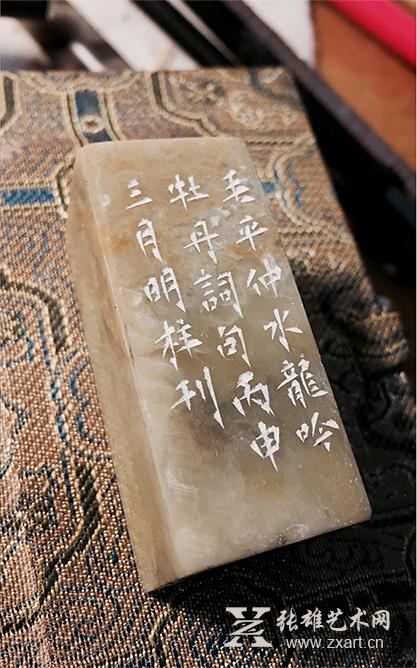 毛平仲水龍吟
牡丹詞句丙申
三月明择刊
张雄艺术网
www.zxart.cn